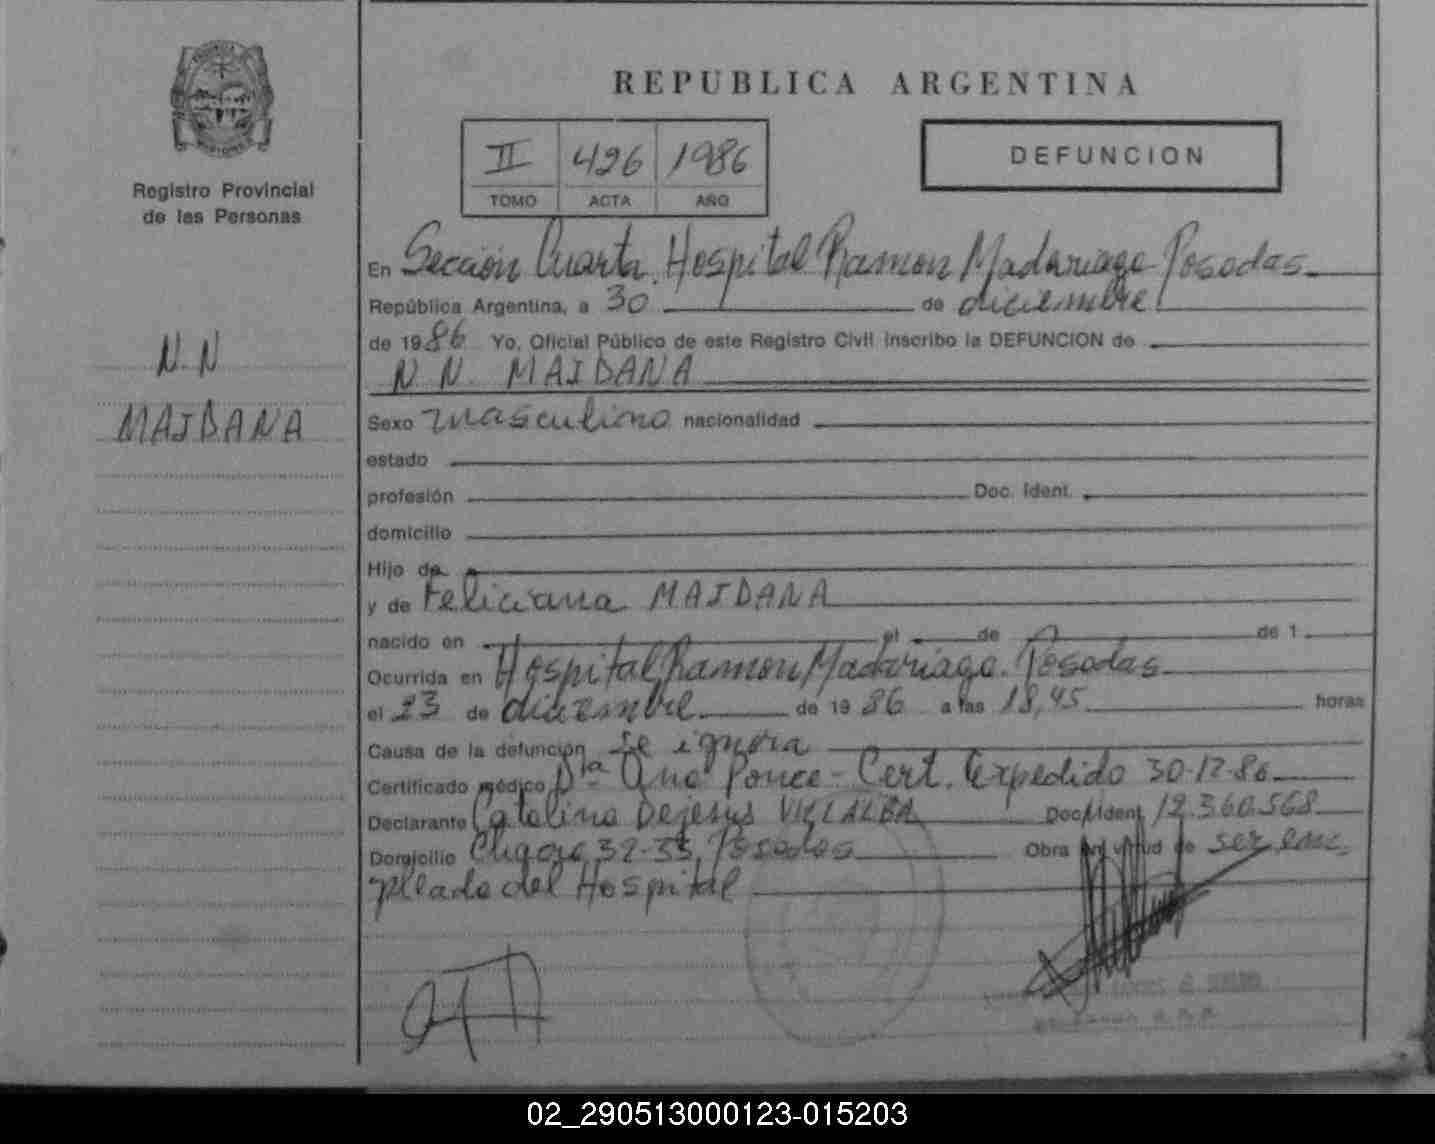 REPUBLICA ARGENTINA
II 426 1986
TOMO ACTA AÑO
DEFUNCION
Registro Provincial
de las Personas
N.N
MAIDANA
En Sección Cuarta, Hospital Ramon Madariaga Posadas
República Argentina, a 30 de diciembre
de 1986 Yo, Oficial Público de este Registro Civil inscribo la DEFUNCION de
N N. MAIDANA
Sexo masculino nacionalidad
estado
profesión Doc. Ident.
domicilio
Hijo de
y de Feliciana MAIDANA
nacido en el de de 1
Ocurrida en Hospital Ramon Madariaga. Posadas
el 23 de diciembre de 19 86 a las 18,45 horas
Causa de la defunción se ignora
Certificado médico Dra Ana Ponce - Cert. Expedido 30-12-86
Declarante Catalino Dejesus VILLALBA Doc. Ident 12.360.568
Domicilio 32-33, Posadas Obra en virtud de ser em
pleado del Hospital
02_290513000123-015203